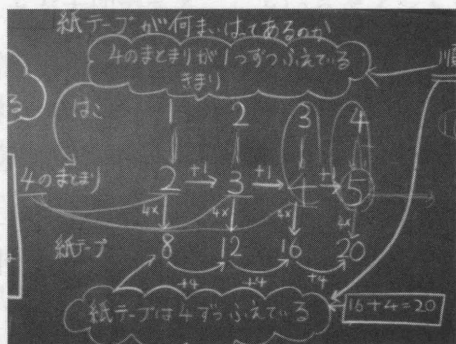 紙テープが何まいはってあるのか
4のまとまりが1つずつふえている
きまり
順
る
はこ 1 2 3 4
4のまとまり 2 +1 3 +1 4 +1 5
4× 4× 4× 4×
紙テープ 8 12 16 20
+4 +4 +4
紙テープは4ずつふえている
16+4=20